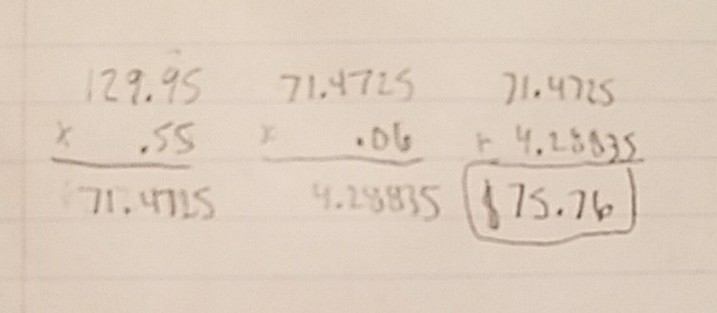 129.95 71.4725 71.4725
x .55 x .06 + 4.28835
71.4725 4.28835 $75.76